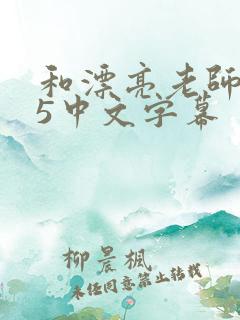 和漂亮老師
5中文字幕
柳晨楓
未经同意禁止转载